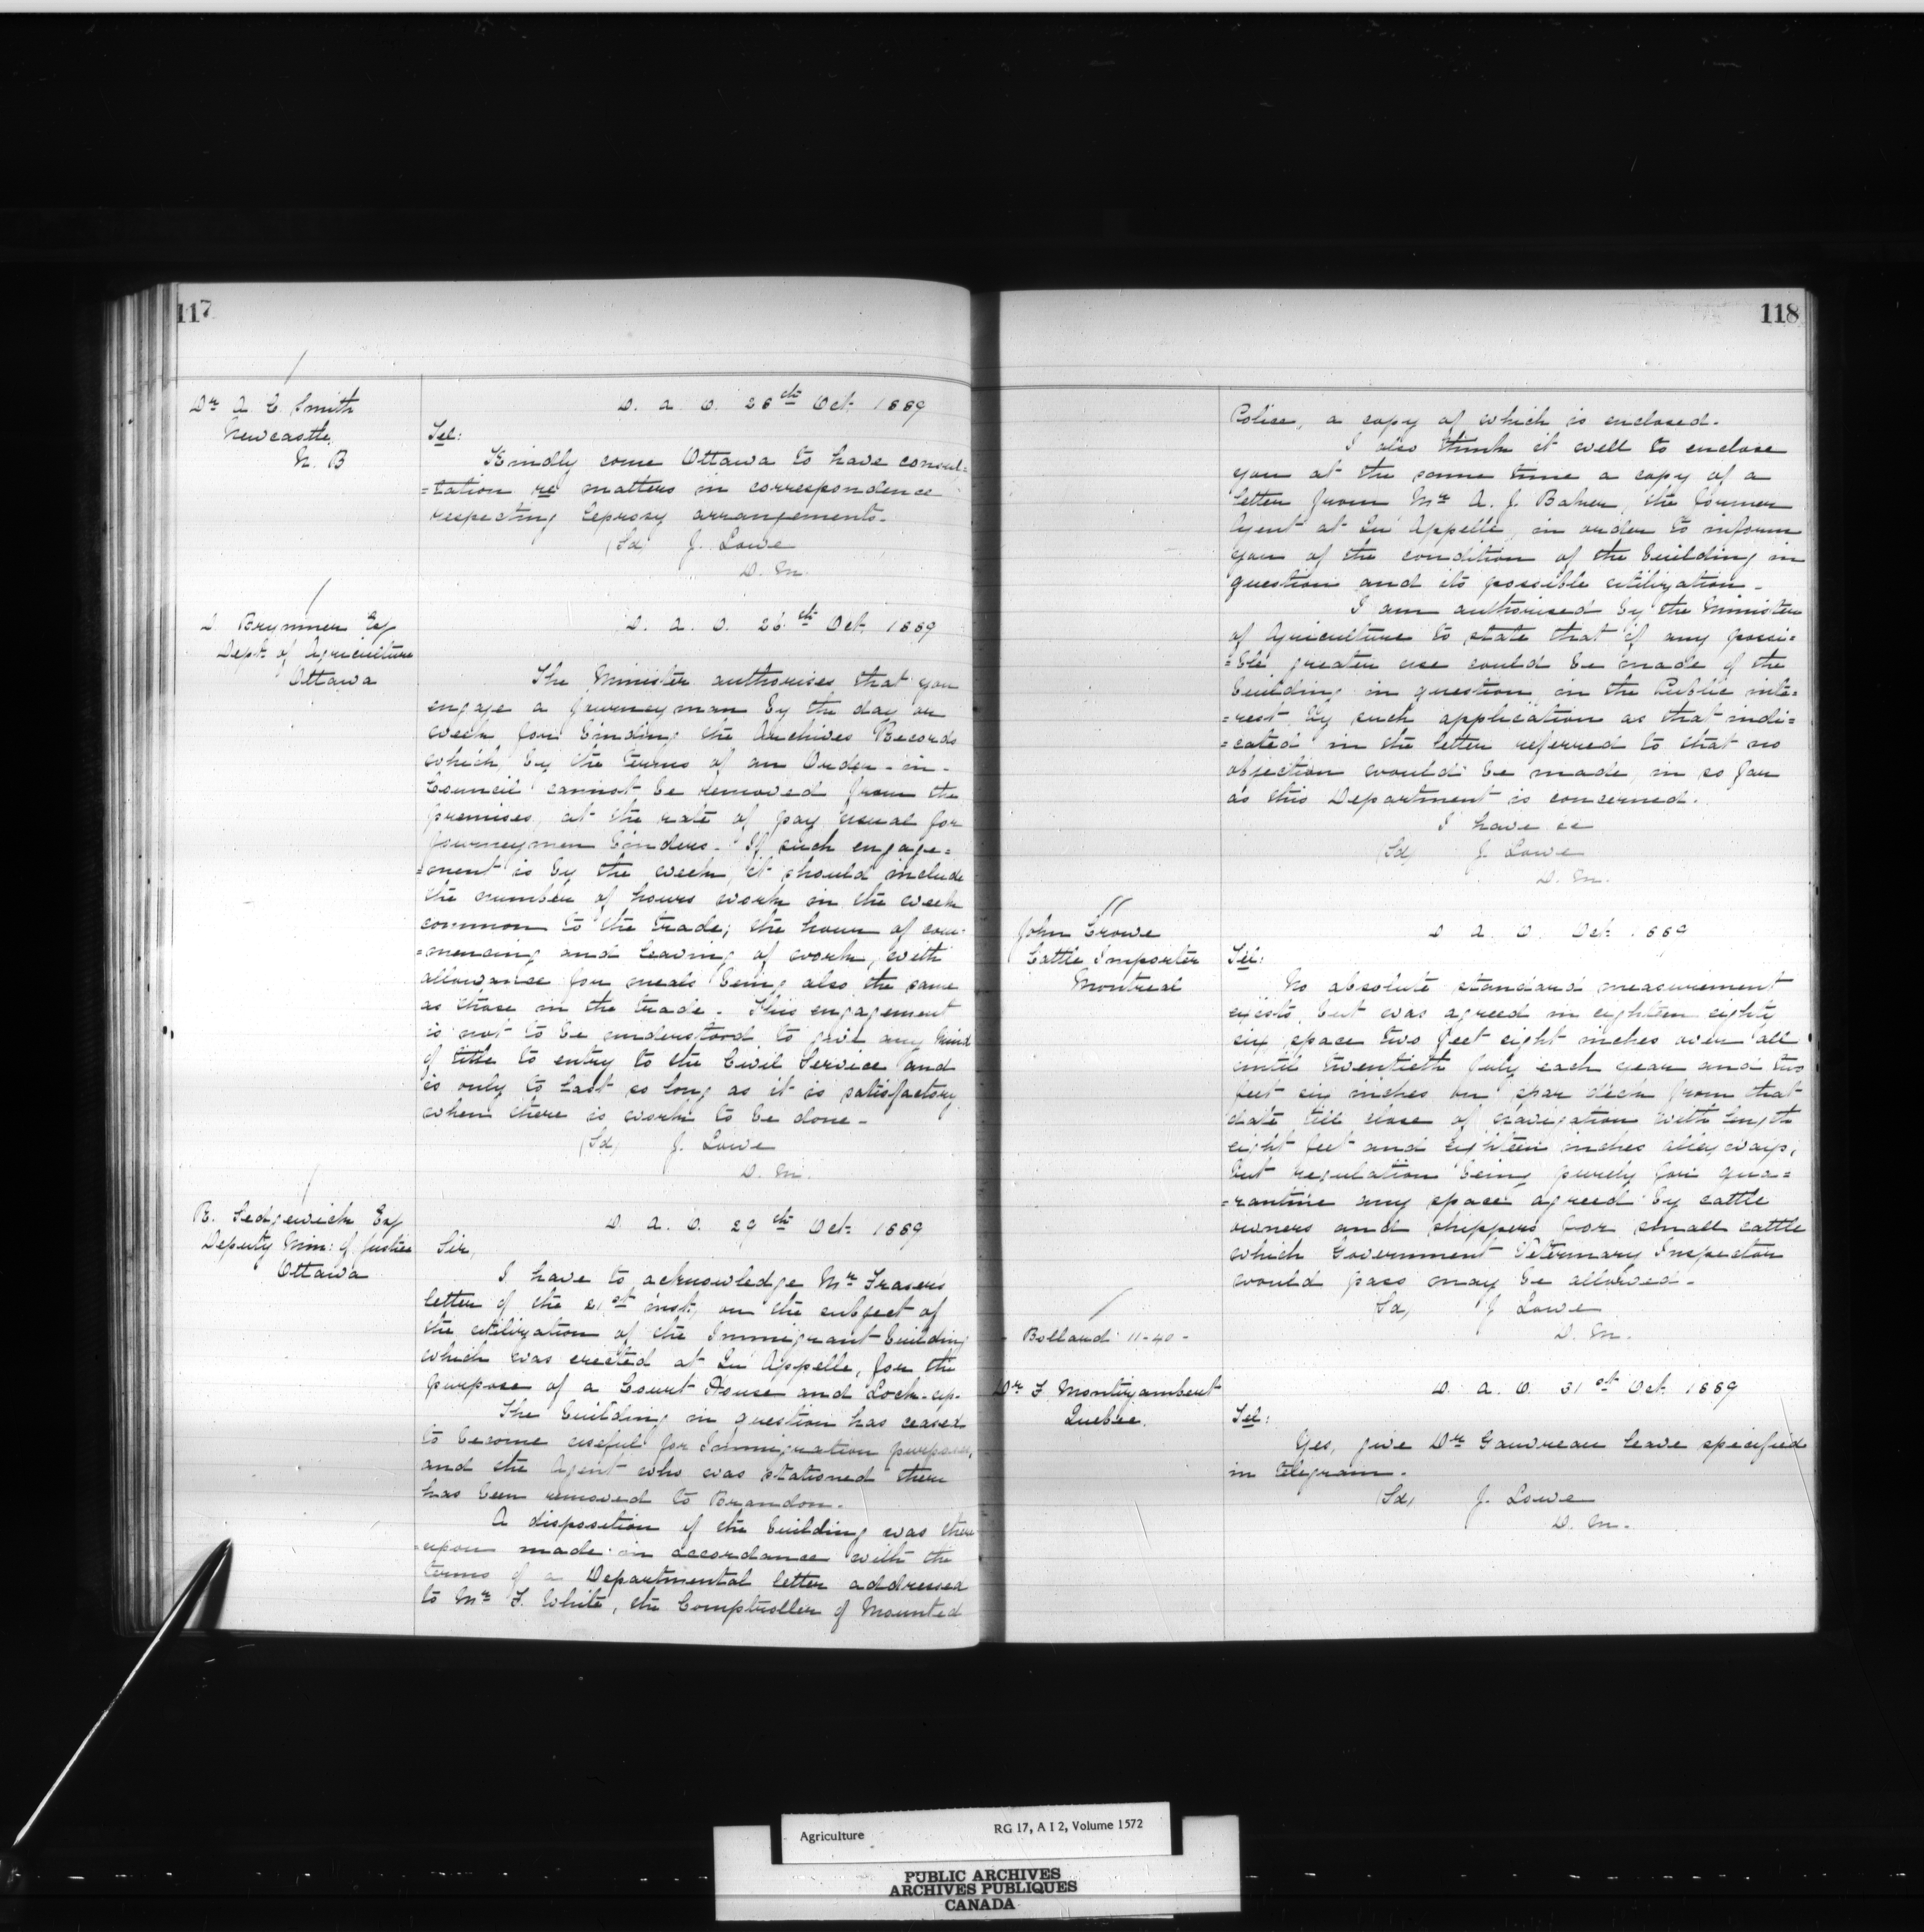 117
Dr A. C. Smith
Newcastle,
N. B
D. a. O. 26th Oct. 1889
Tel:
Kindly come Ottawa to have consul=
=tation re matters in correspondence
respecting Leprosy arrangements.
(Sd) J. Lowe
D. M.
D. Brymner Esq
Dept. of Agriculture
Ottawa
D. a. O. 26th Oct. 1889
The Minister authorises that you
engage a journeyman by the day or
week for binding the Archives Records
which, by the terms of an Order-in-
Council cannot be removed from the
premises, at the rate of pay usual for
journeymen binders. If such engage=
=ment is by the week, it should include
the number of hours work in the week
common to the trade; the hour of com=
=mencing and leaving of work, with
allowance for meals being also the same
as those in the trade. This engagement
is not to be understood to give any kind
of title to entry to the Civil Service and
is only to last so long as it is satisfactory
when there is work to be done.
(Sd) J. Lowe
D. M.
R. Sedgewick Esq
Deputy Min: of Justice
Ottawa
D. a. O. 29th Oct. 1889
Sir,
I have to acknowledge Mr Fraser's
letter of the 21st inst, on the subject of
the utilization of the Immigrant building
which was erected at Qu'Appelle, for the
purpose of a Court House and Lock-up.
The building in question has ceased
to become useful for Immigration purposes,
and the Agent who was stationed there
has been removed to Brandon.
A disposition of the building was there
=upon made in accordance with the
terms of a Departmental letter addressed
to Mr F. White, the Comptroller of Mounted
118
Police, a copy of which is enclosed.
I also think it well to enclose
you at the same time a copy of a
letter from Mr A. J. Baker, the former
Agent at Qu'Appelle, in order to inform
you of the condition of the building in
question and its possible utilization.
I am authorised by the Minister
of Agriculture to state that if any possi=
=ble greater use could be made of the
building in question in the Public inte=
=rest by such application as that indi=
=cated in the letter referred to that no
objection would be made, in so far
as this Department is concerned.
I have &c
(Sd) J. Lowe
D. M.
John Crowe
Cattle Importer
Montreal
D. a. O. Oct. 1889
Tel:
No absolute standard measurement
exists, but was agreed in eighteen eighty
six space two feet eight inches over all
until twentieth July each year and two
feet six inches on spar deck from that
date till close of navigation with length
eight feet and eighteen inches alleyways;
but regulation being purely for qua=
=rantine any space agreed by cattle
owners and shippers for small cattle
which Government Veterinary Inspector
would pass may be allowed.
(Sd) J Lowe
D. M.
Bollard 11-40-
Dr F. Montizambert
Quebec.
D. a. O. 31st Oct. 1889
Tel:
Yes, give Dr Gauvreau leave specified
in telegram.
(Sd) J. Lowe
D. M.
Agriculture
RG 17, A I 2, Volume 1572
PUBLIC ARCHIVES
ARCHIVES PUBLIQUES
CANADA